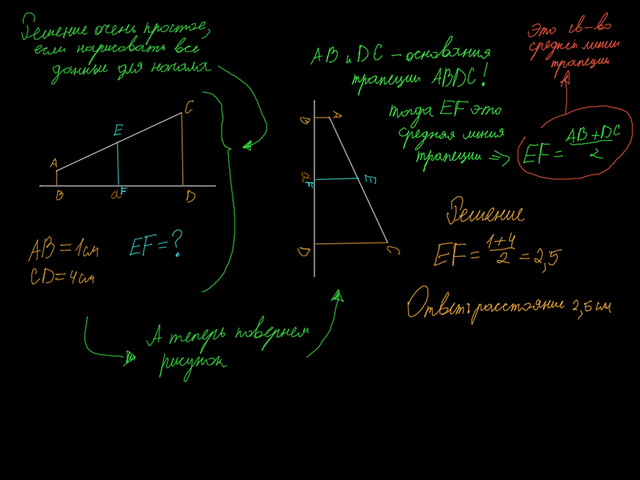 Решение очень простое,
если нарисовать все
данные для начала
C
E
A
B
F
D
AB = 1 см
EF = ?
CD = 4 см
А теперь повернем
рисунок
AB и DC – основания
трапеции ABDC!
тогда EF это
средняя линия
трапеции =>
EF = AB + DC / 2
Это св-во
средней линии
трапеции
B
A
F
E
D
C
Решение
EF = 1+4 / 2 = 2,5
Ответ: расстояние 2,5 см